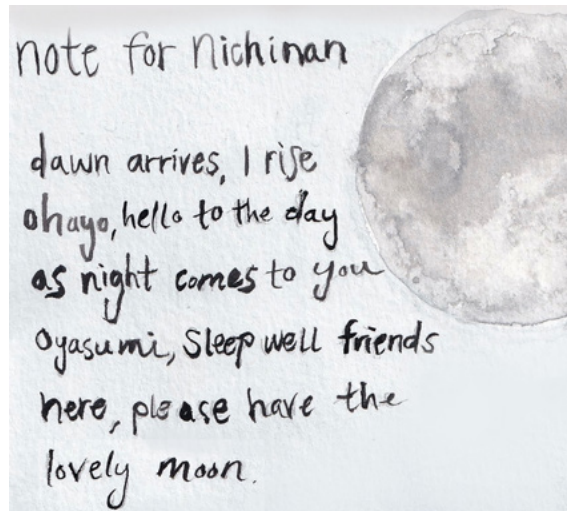 note for Nichinan
dawn arrives, I rise
ohayo, hello to the day
as night comes to you
Oyasumi, Sleep well friends
here, please have the
lovely moon.